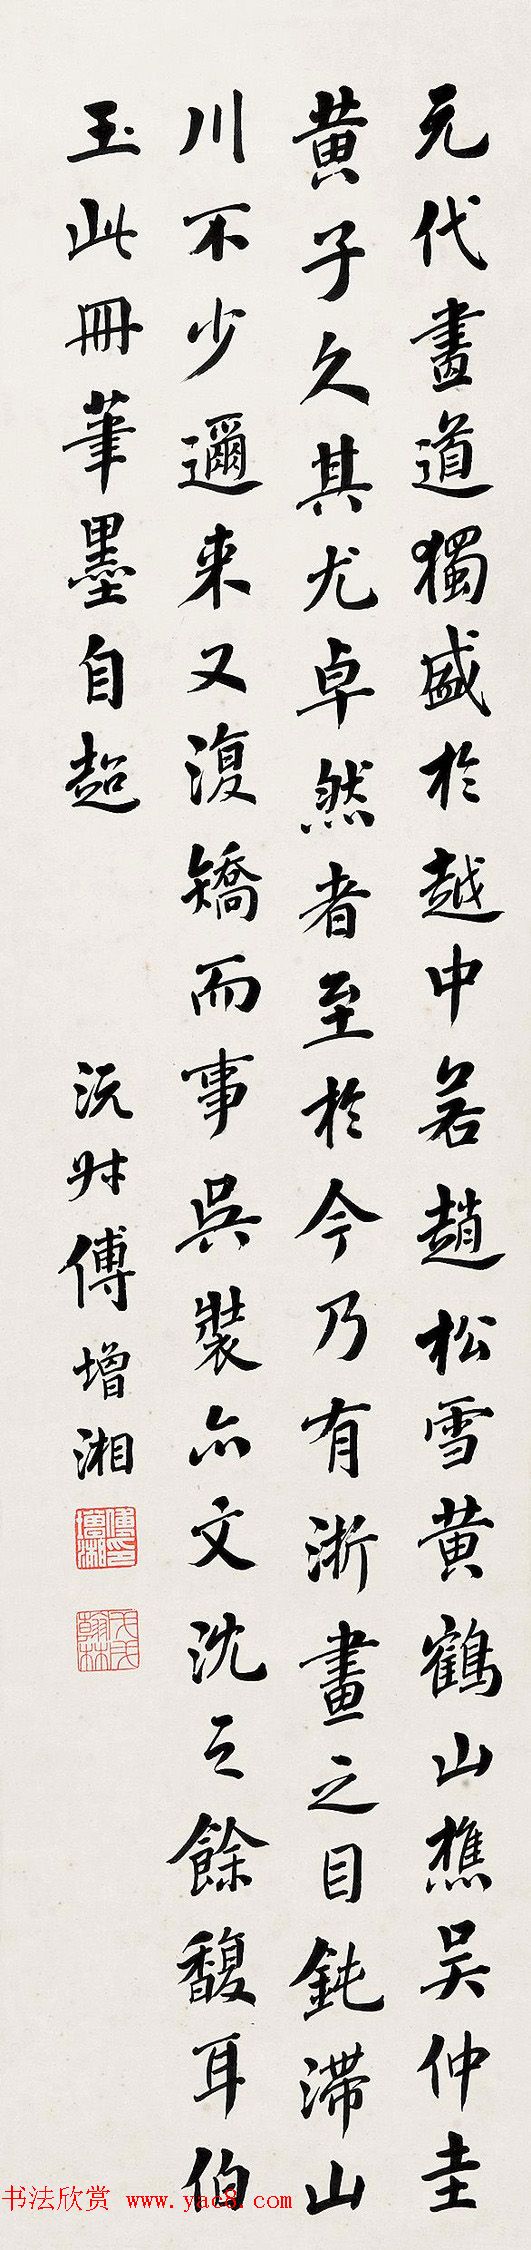 元代畫道獨盛於越中若趙松雪黄鶴山樵吴仲圭
黄子久其尤卓然者至於今乃有浙畫之目鈍滯山
川不少邇来又復矯而事吳裝亦文沈之餘馥耳伯
玉此冊筆墨自超
沅叔傅增湘
傅印增湘
戊戌翰林
书法欣赏 www.yac8.com